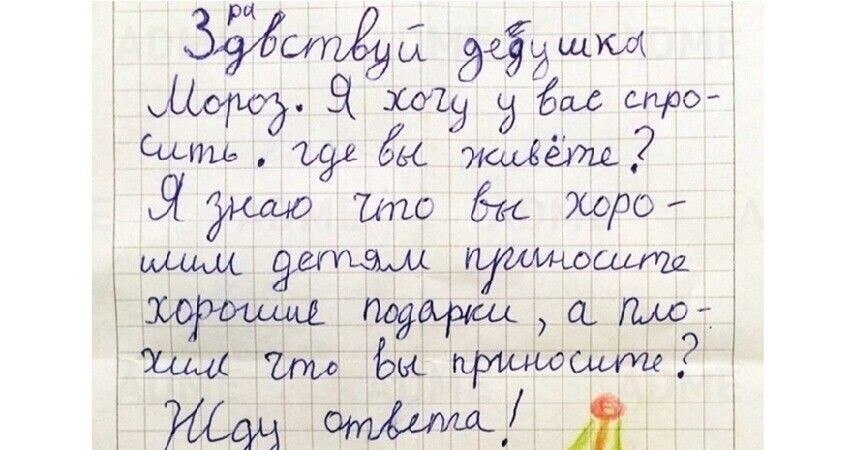 Здравствуй дедушка
Мороз. Я хочу у вас спро-
сить. где вы живёте?
Я знаю что вы хоро-
шим детям приносите
хорошие подарки, а пло-
хим что вы приносите?
Жду ответа!